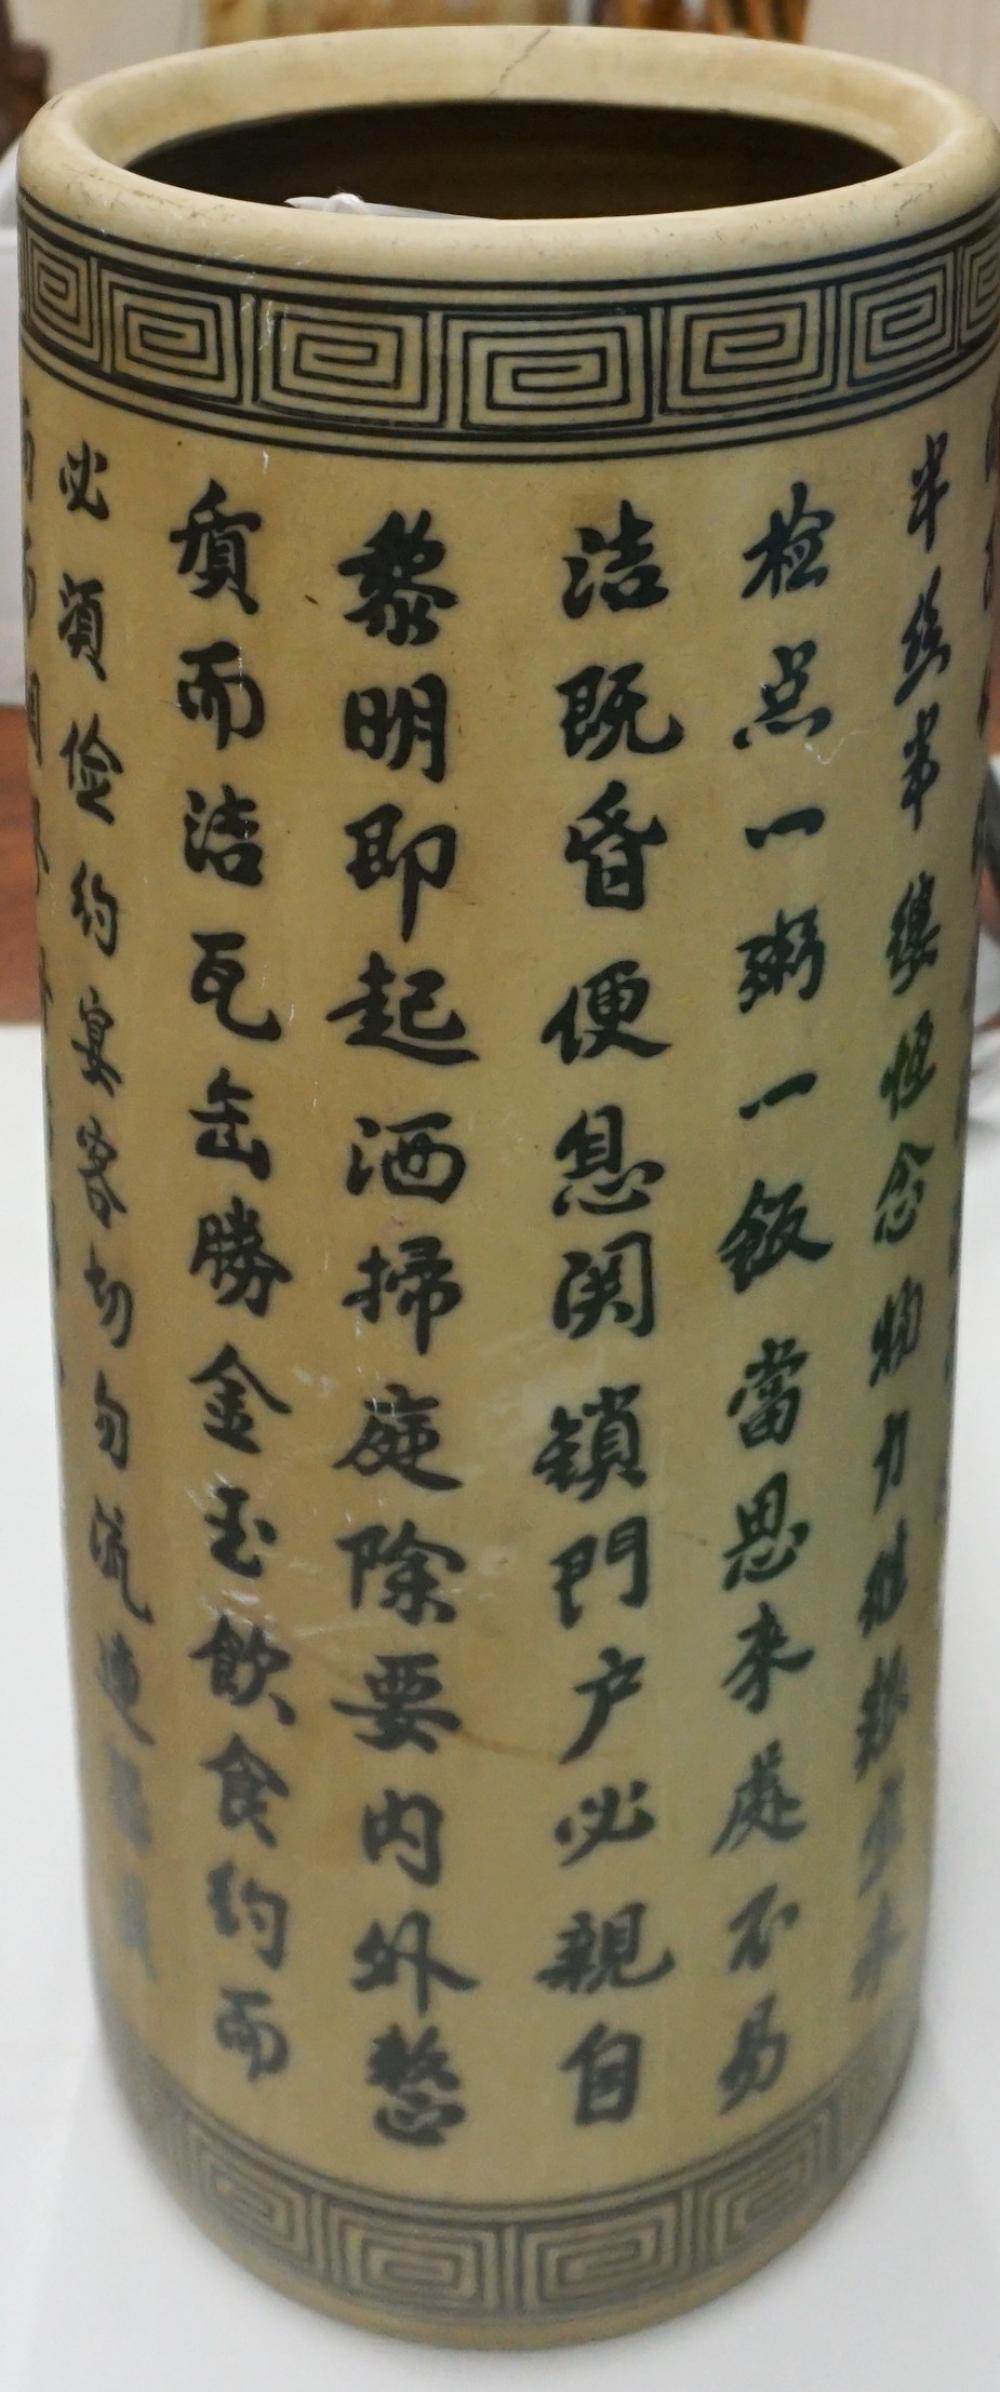 必湏俭約宴客切勿流連器具
質而洁瓦缶勝金玉飲食約而
黎明即起洒掃庭除要内外整
洁既昏便息関鎖門户必親自
检点一粥一飯當思來處不易
半絲半縷恒念物力維艱宜未